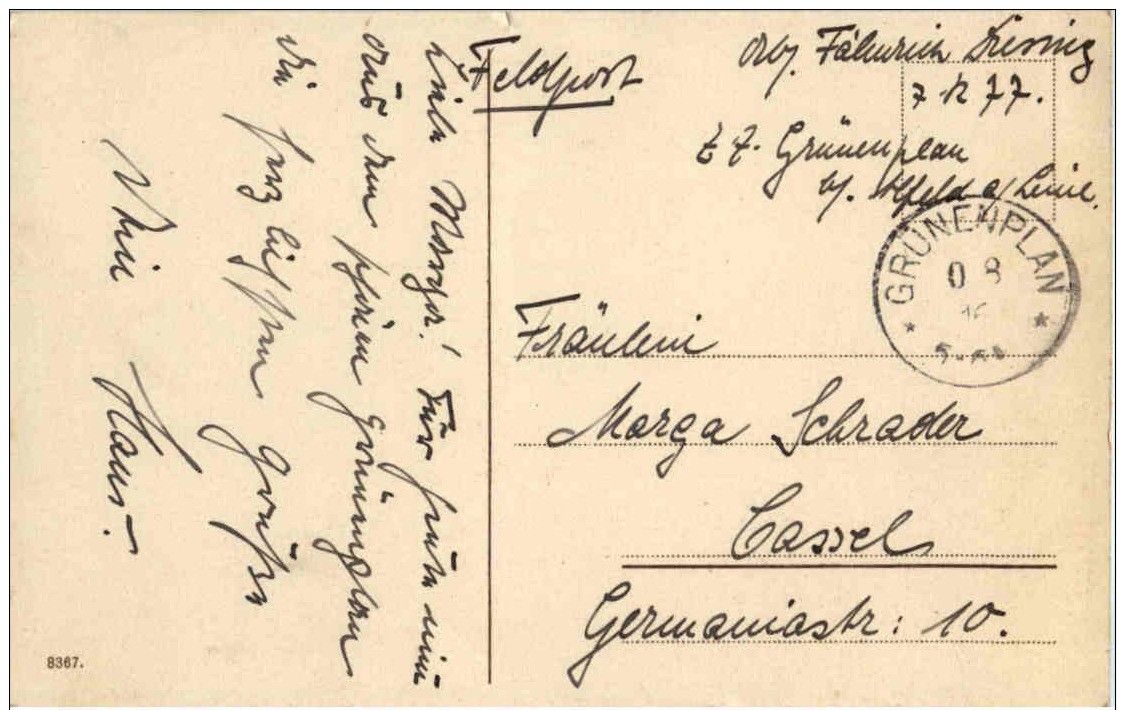 Feldpost
Abs. Fähnrich
z. Z. Grünenplan
b/. Alfeld a/ Leine.
GRÜNENPLAN
Fräulein
Marga Schrader
Cassel
Germaniastr: 10.
Liebe Marga! Für heute nun
aus dem schönen Grünenplan
die herzlichsten Grüße
Dein Hans.
8367.